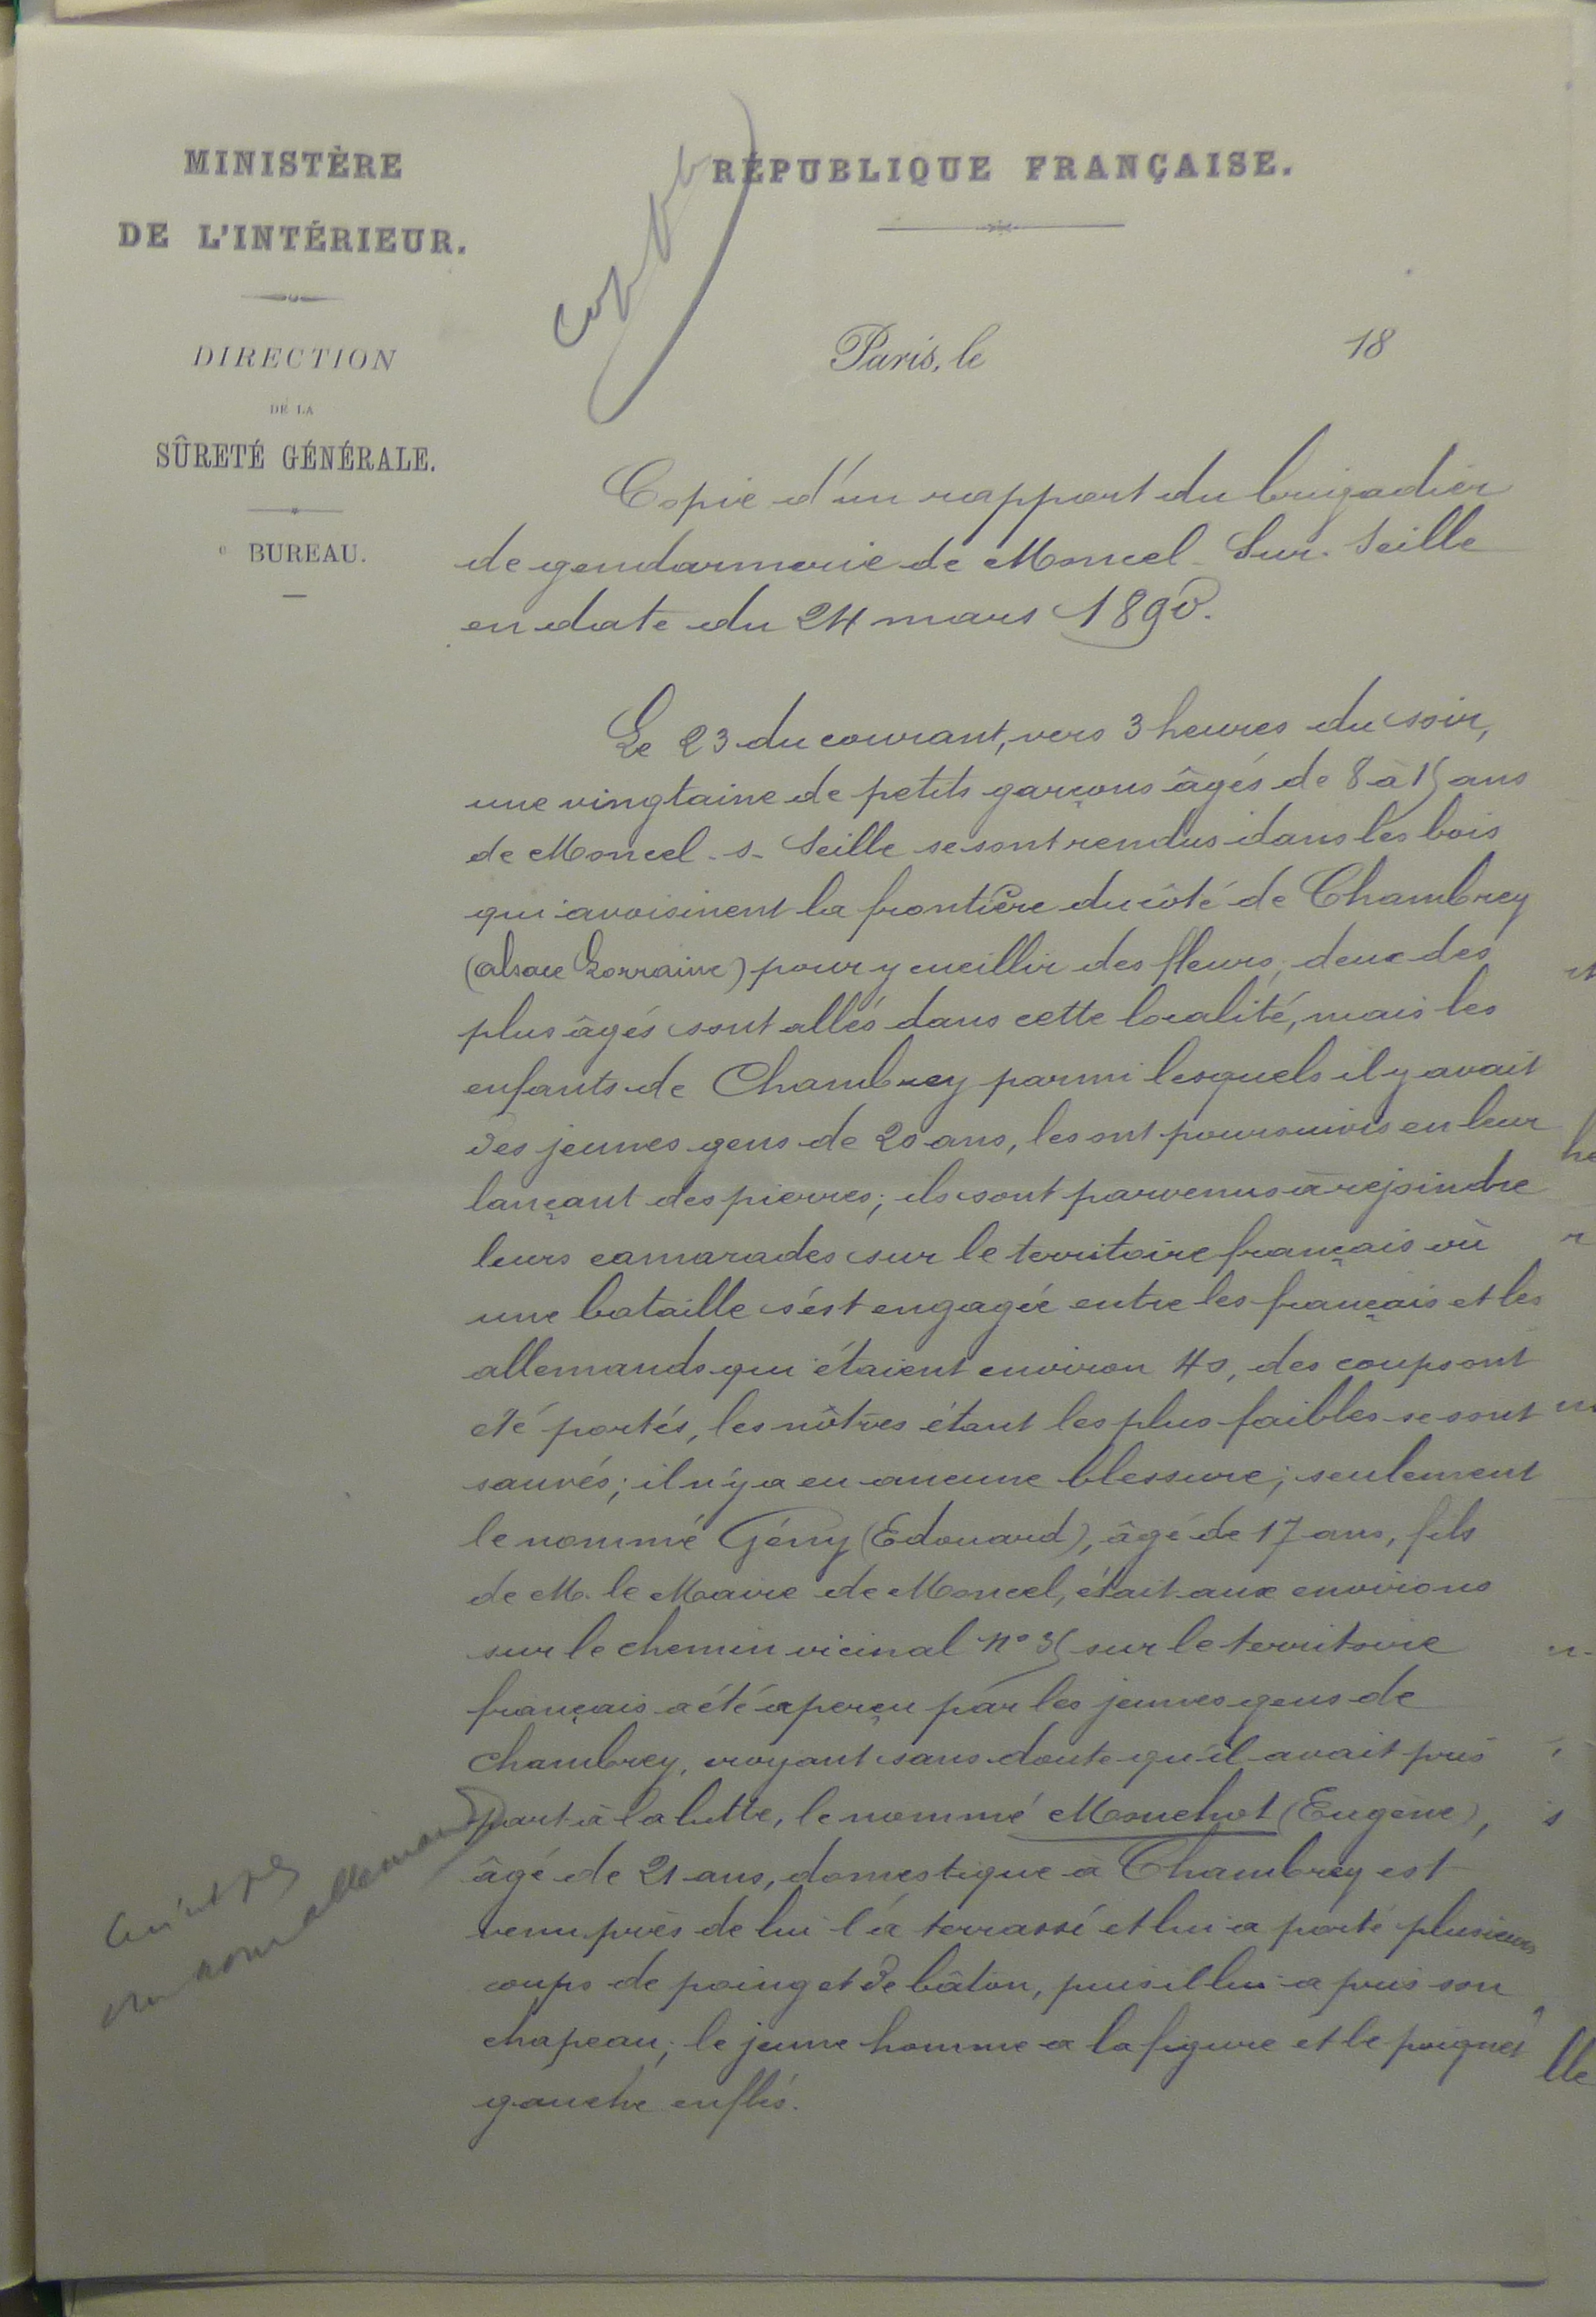 MINISTÈRE
DE L'INTÉRIEUR.
DIRECTION
DE LA
SÛRETÉ GÉNÉRALE.
e BUREAU.
RÉPUBLIQUE FRANÇAISE.
Paris, le 18
Copie d'un rapport du brigadier
de gendarmerie de Moncel-Sur-Seille
en date du 24 mars 1890.
Le 23 du courant, vers 3 heures du soir,
une vingtaine de petits garçons âgés de 8 à 15 ans
de Moncel-s-Seille se sont rendus dans les bois
qui avoisinent la frontière du côté de Chambrey
(alsace Lorraine) pour y cueillir des fleurs, deux des
plus âgés sont allés dans cette localité, mais les
enfants de Chambrey parmi lesquels il y avait
des jeunes gens de 20 ans, les ont poursuivis en leur
lançant des pierres; ils sont parvenus à rejoindre
leurs camarades sur le territoire français où
une bataille s'est engagée entre les français et les
allemands qui étaient environ 40, des coups ont
été portés, les nôtres étant les plus faibles se sont
sauvés; il n'y a eu aucune blessure; seulement
le nommé Gény (Edouard), âgé de 17 ans, fils
de M. le Maire de Moncel, était aux environs
sur le chemin vicinal n° 35 sur le territoire
français a été aperçu par les jeunes gens de
Chambrey, croyant sans doute qu'il avait pris
part à la lutte, le nommé Mouchot (Eugène),
âgé de 21 ans, domestique à Chambrey est
venu près de lui l'a terrassé et lui a porté plusieurs
coups de poing et de bâton, puis il lui a pris son
chapeau; le jeune homme a la figure et le poignet
gauche enflés.
Ce n'est pas
un nom allemand